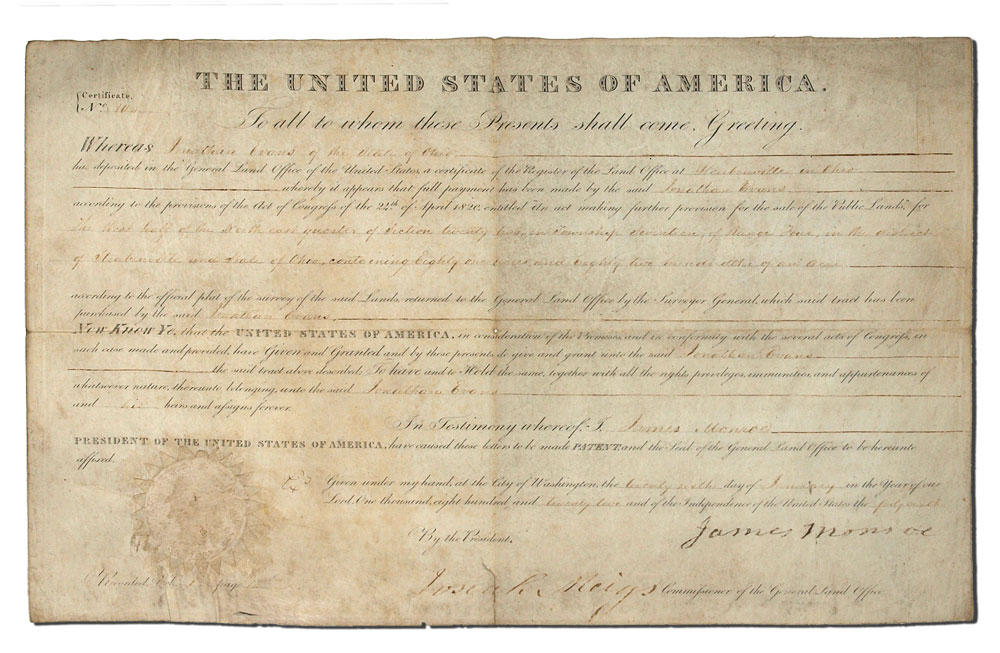 THE UNITED STATES OF AMERICA.
Certificate.
No.
To all to whom these Presents shall come, Greeting.
Whereas Jonathan Evans of the State of Ohio
has deposited in the General Land Office of the United States, a certificate of the Register of the Land Office at Steubenville in Ohio
whereby it appears that full payment has been made by the said Jonathan Evans
according to the provisions of the Act of Congress of the 22nd of April 1820, entitled An act making further provision for the sale of the Public Lands, for
the West half of the North east quarter of Section twenty two, in Township Seventeen, of Range Four, in the district
of Steubenville and State of Ohio, containing Eighty one acres and eighty two hundredths of an acre
according to the official plat of the survey of the said Lands, returned to the General Land Office by the Surveyor General, which said tract has been
purchased by the said Jonathan Evans
Now Know Ye, that the UNITED STATES OF AMERICA, in consideration of the Premises, and in conformity with the several acts of Congress, in
such case made and provided, have Given and Granted and by these presents, do give and grant unto the said Jonathan Evans
the said tract above described: To have and to Hold the same, together with all the rights, privileges, immunities, and appurtenances of
whatsoever nature, thereunto belonging, unto the said Jonathan Evans
and his heirs and assigns forever.
In Testimony whereof, I James Monroe
PRESIDENT OF THE UNITED STATES OF AMERICA, have caused these letters to be made PATENT, and the Seal of the General Land Office to be hereunto
affixed.
Given under my hand, at the City of Washington, the day of January in the Year of our
Lord, One thousand, eight hundred and twenty two and of the Independence of the United States the forty sixth
By the President.
James Monroe
Recorded, Vol. page
Josiah Meigs Commissioner of the General Land Office